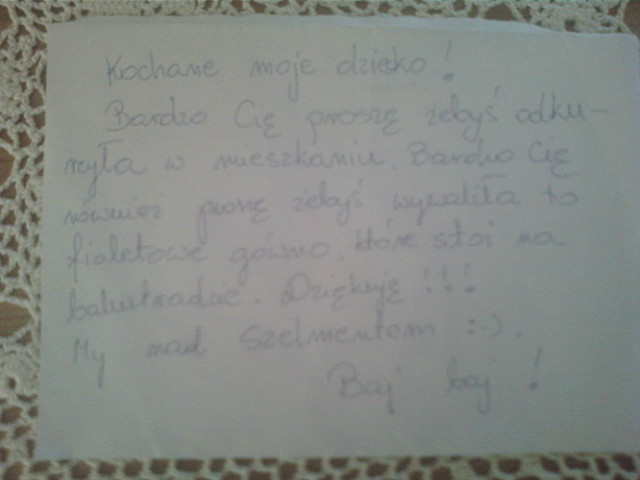 Kochane moje dziecko!
Bardzo Cię proszę żebyś odku-
rzyła w mieszkaniu. Bardzo Cię
również proszę żebyś wywaliła to
fioletowe gówno, które stoi na
balustradzie. Dziękuję!!!
My nad Szelmentem :-).
Baj baj!